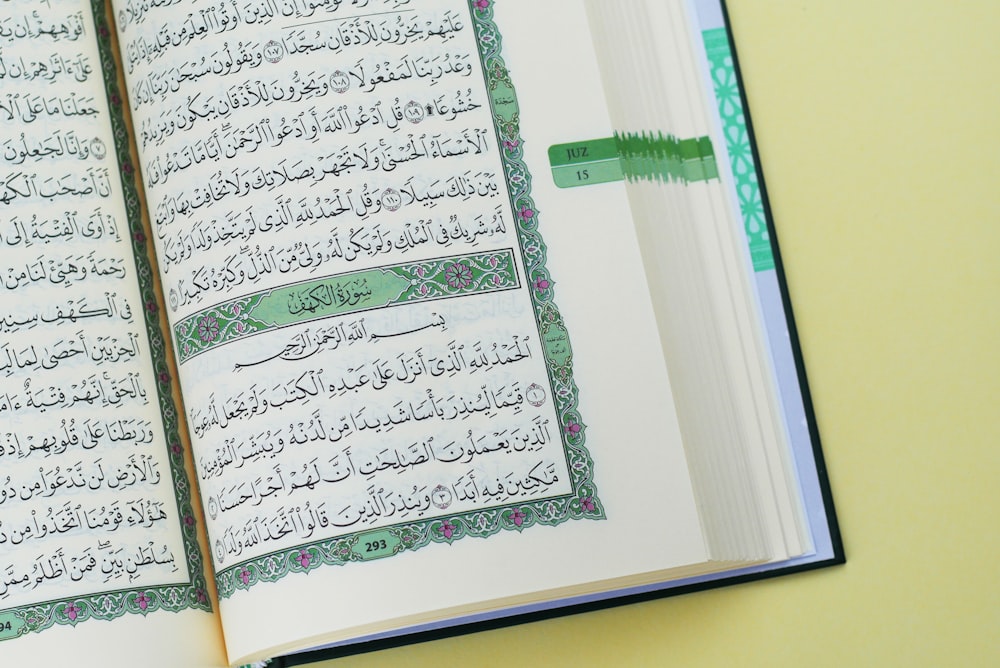 تُؤْمِنُوٓا۟ إِنَّ ٱلَّذِينَ أُوتُوا۟ ٱلْعِلْمَ مِن قَبْلِهِۦٓ إِذَا
عَلَيْهِمْ يَخِرُّونَ لِلْأَذْقَانِ سُجَّدًا ١٠٧ وَيَقُولُونَ سُبْحَٰنَ رَبِّنَآ إِن كَانَ
وَعْدُ رَبِّنَا لَمَفْعُولًا ١٠٨ وَيَخِرُّونَ لِلْأَذْقَانِ يَبْكُونَ وَيَزِيدُهُمْ
خُشُوعًا ۩ ١٠٩ قُلِ ٱدْعُوا۟ ٱللَّهَ أَوِ ٱدْعُوا۟ ٱلرَّحْمَٰنَ أَيًّا مَّا تَدْعُوا۟ فَلَهُ
ٱلْأَسْمَآءُ ٱلْحُسْنَىٰ وَلَا تَجْهَرْ بِصَلَاتِكَ وَلَا تُخَافِتْ بِهَا وَٱبْتَغِ
بَيْنَ ذَٰلِكَ سَبِيلًا ١١٠ وَقُلِ ٱلْحَمْدُ لِلَّهِ ٱلَّذِى لَمْ يَتَّخِذْ وَلَدًا وَلَمْ يَكُن
لَّهُۥ شَرِيكٌ فِى ٱلْمُلْكِ وَلَمْ يَكُن لَّهُۥ وَلِىٌّ مِّنَ ٱلذُّلِّ وَكَبِّرْهُ تَكْبِيرًۢا ١١١
سُورَةُ الكَهْفِ
بِسْمِ ٱللَّهِ ٱلرَّحْمَٰنِ ٱلرَّحِيمِ
ٱلْحَمْدُ لِلَّهِ ٱلَّذِىٓ أَنزَلَ عَلَىٰ عَبْدِهِ ٱلْكِتَٰبَ وَلَمْ يَجْعَل لَّهُۥ عِوَجَا
١ قَيِّمًا لِّيُنذِرَ بَأْسًا شَدِيدًا مِّن لَّدُنْهُ وَيُبَشِّرَ ٱلْمُؤْمِنِينَ
ٱلَّذِينَ يَعْمَلُونَ ٱلصَّٰلِحَٰتِ أَنَّ لَهُمْ أَجْرًا حَسَنًا ٢
مَّٰكِثِينَ فِيهِ أَبَدًا ٣ وَيُنذِرَ ٱلَّذِينَ قَالُوا۟ ٱتَّخَذَ ٱللَّهُ وَلَدًا ٤
293
سَجْدَة
JUZ
15
أَفْوَٰهِهِمْ إِن
عَلَىٰٓ ءَاثَٰرِهِمْ إِن
جَعَلْنَا مَا عَلَى
٧ وَإِنَّا لَجَٰعِلُونَ
أَنَّ أَصْحَٰبَ
إِذْ أَوَى ٱلْفِتْيَةُ إِلَى
رَحْمَةً وَهَيِّئْ لَنَا مِنْ
فِى ٱلْكَهْفِ
ٱلْحِزْبَيْنِ أَحْصَىٰ لِمَا
بِٱلْحَقِّ إِنَّهُمْ فِتْيَةٌ
وَرَبَطْنَا عَلَىٰ قُلُوبِهِمْ إِذْ
وَٱلْأَرْضِ لَن نَّدْعُوَا۟ مِن
هَٰٓؤُلَآءِ قَوْمُنَا ٱتَّخَذُوا۟ مِن
بِسُلْطَٰنٍۭ بَيِّنٍ فَمَنْ أَظْلَمُ مِمَّنِ
94